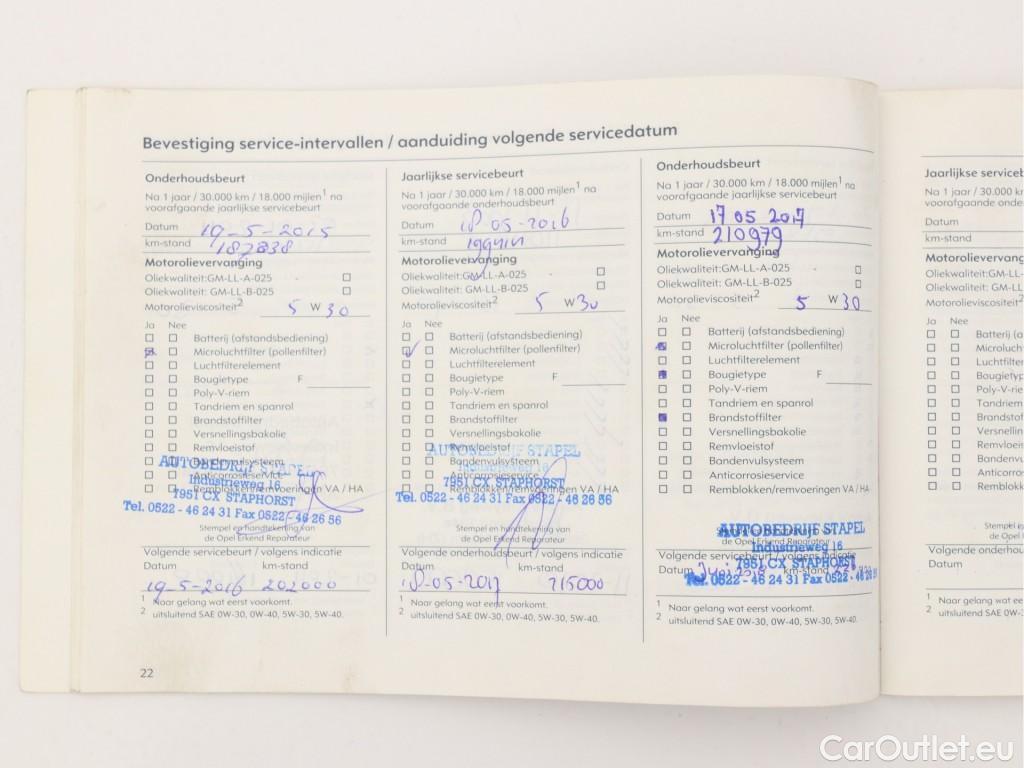 Bevestiging service-intervallen / aanduiding volgende servicedatum
Onderhoudsbeurt
Na 1 jaar / 30.000 km / 18.000 mijlen1 na
voorafgaande jaarlijkse servicebeurt
Datum 19-5-2015
km-stand 187838
Motorolievervanging
Oliekwaliteit: GM-LL-A-025
Oliekwaliteit: GM-LL-B-025
Motorolieviscositeit2 5 W 30
Ja Nee
Batterij (afstandsbediening)
Microluchtfilter (pollenfilter)
Luchtfilterelement
Bougietype F
Poly-V-riem
Tandriem en spanrol
Brandstoffilter
Versnellingsbakolie
Remvloeistof
Bandenvulsysteem
Anticorrosieservice
Remblokken/remvoeringen VA / HA
AUTOBEDRIJF STAPEL
Industrieweg 16
7951 CX STAPHORST
Tel. 0522 - 46 24 31 Fax 0522 - 46 26 56
Stempel en handtekening van
de Opel Erkend Reparateur
Volgende servicebeurt / volgens indicatie
Datum km-stand
19-5-2016 202000
1 Naar gelang wat eerst voorkomt.
2 uitsluitend SAE 0W-30, 0W-40, 5W-30, 5W-40.
22
Jaarlijkse servicebeurt
Na 1 jaar / 30.000 km / 18.000 mijlen1 na
voorafgaande onderhoudsbeurt
Datum 18-05-2016
km-stand
Motorolievervanging
Oliekwaliteit: GM-LL-A-025
Oliekwaliteit: GM-LL-B-025
Motorolieviscositeit2 5 W 30
Ja Nee
Batterij (afstandsbediening)
Microluchtfilter (pollenfilter)
Luchtfilterelement
Bougietype F
Poly-V-riem
Tandriem en spanrol
Brandstoffilter
Versnellingsbakolie
Remvloeistof
Bandenvulsysteem
Anticorrosieservice
Remblokken/remvoeringen VA / HA
AUTOBEDRIJF STAPEL
Industrieweg 16
7951 CX STAPHORST
Tel. 0522 - 46 24 31 Fax 0522 - 46 26 56
Stempel en handtekening van
de Opel Erkend Reparateur
Volgende onderhoudsbeurt / volgens indicatie
Datum km-stand
18-05-2017 215000
1 Naar gelang wat eerst voorkomt.
2 uitsluitend SAE 0W-30, 0W-40, 5W-30, 5W-40.
Onderhoudsbeurt
Na 1 jaar / 30.000 km / 18.000 mijlen1 na
voorafgaande jaarlijkse servicebeurt
Datum 17 05 2017
km-stand 210979
Motorolievervanging
Oliekwaliteit: GM-LL-A-025
Oliekwaliteit: GM-LL-B-025
Motorolieviscositeit2 5 W 30
Ja Nee
Batterij (afstandsbediening)
Microluchtfilter (pollenfilter)
Luchtfilterelement
Bougietype F
Poly-V-riem
Tandriem en spanrol
Brandstoffilter
Versnellingsbakolie
Remvloeistof
Bandenvulsysteem
Anticorrosieservice
Remblokken/remvoeringen VA / HA
Stempel en handtekening van
de Opel Erkend Reparateur
AUTOBEDRIJF STAPEL
Industrieweg 16
7951 CX STAPHORST
Tel. 0522 - 46 24 31 Fax 0522 - 46 26 56
Volgende servicebeurt / volgens indicatie
Datum km-stand
1 Naar gelang wat eerst voorkomt.
2 uitsluitend SAE 0W-30, 0W-40, 5W-30, 5W-40.
Jaarlijkse serviceb
Na 1 jaar / 30.000 k
voorafgaande onder
Datum
km-stand
Motorolievervang
Oliekwaliteit:GM-L
Oliekwaliteit: GM-L
Motorolieviscositei
Ja Nee
Batterij (a
Microluch
Luchtfilter
Bougietyp
Poly-V-rie
Tandriem
Brandstof
Versnellin
Remvloei
Bandenvu
Anticorros
Remblokk
Stemp
de Op
Volgende onderho
Datum
1 Naar gelang wa
2 uitsluitend SAE 0
CarOutlet.eu